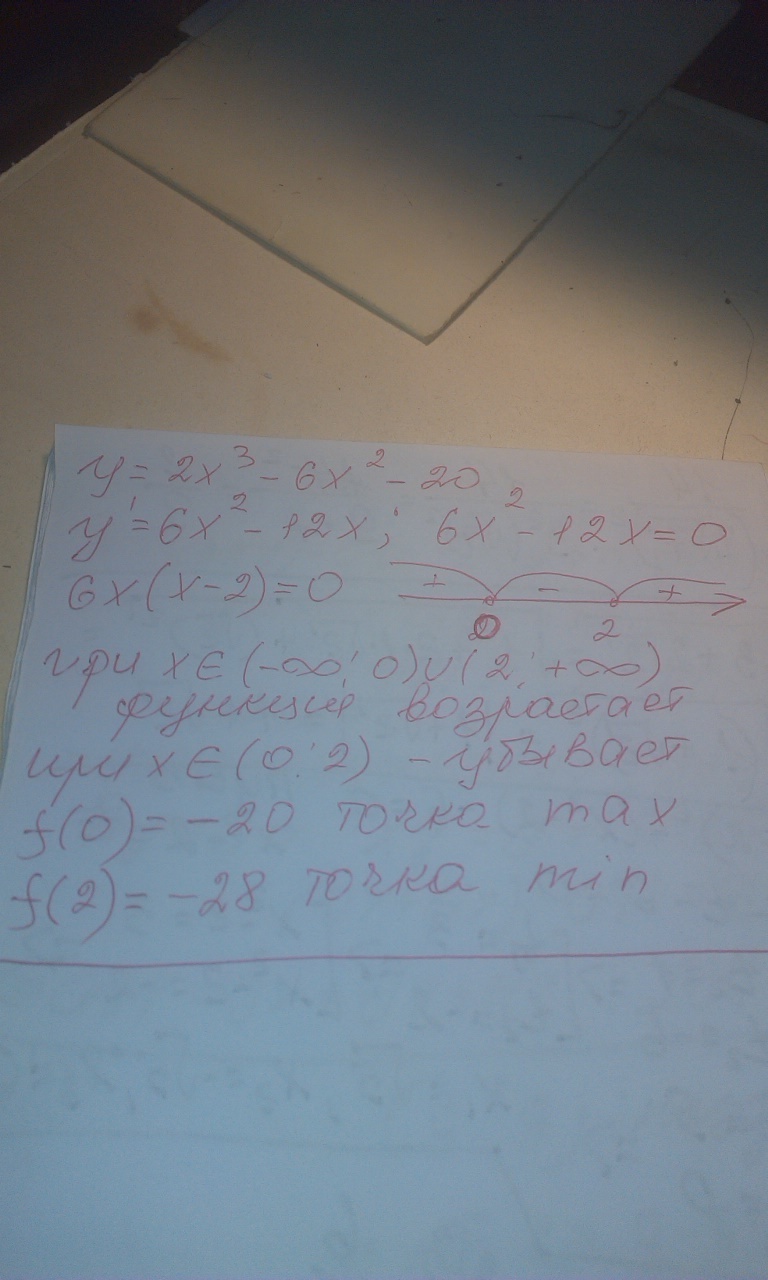 y = 2x³ - 6x² - 20
y' = 6x² - 12x; 6x² - 12x = 0
6x(x-2) = 0 + - +
0 2
при x ∈ (-∞; 0)∪(2; +∞)
функция возрастает
при x ∈ (0; 2) - убывает
f(0) = -20 точка max
f(2) = -28 точка min